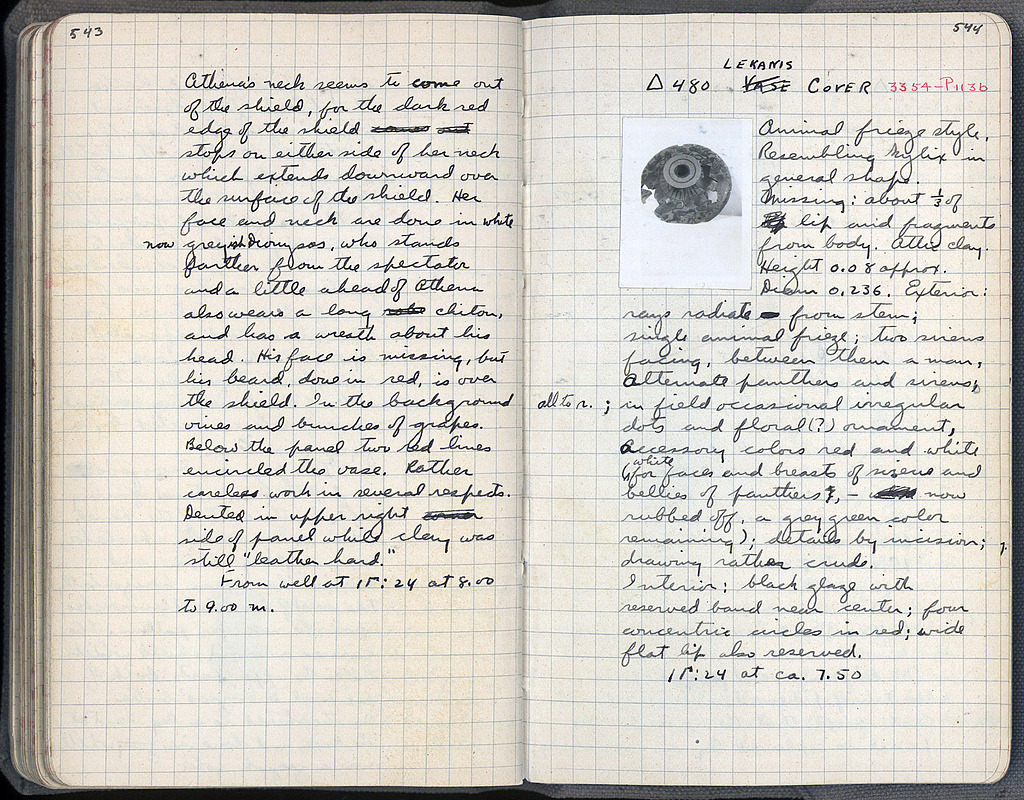 543
Athena's neck seems to come out
of the shield, for the dark red
edge of the shield
stops on either side of her neck
which extends downward over
the surface of the shield. Her
face and neck are done in white
now greyish. Dionysos, who stands
farther from the spectator
and a little ahead of Athena
also wears a long chiton,
and has a wreath about his
head. His face is missing, but
his beard, done in red, is over
the shield. In the background
vines and bunches of grapes.
Below the panel two red lines
encircled the vase. Rather
careless work in several respects.
Dented in upper right
side of panel while clay was
still "leather hard."
From well at 15:24 at 8.00
to 9.00 m.
544
LEKANIS
Δ 480 VASE COVER 3354-P1136
Animal frieze style.
Resembling kylix in
general shape.
Missing: about 1/3 of
lip and fragments
from body. Attic clay.
Height 0.08 approx.
Diam 0.236. Exterior:
rays radiate from stem;
single animal frieze; two sirens
facing, between them a man,
alternate panthers and sirens,
all to r. ; in field occasional irregular
dots and floral (?) ornament,
accessory colors red and white
(white for faces and breasts of sirens and
bellies of panthers, – now
rubbed off, a grey green color
remaining); details by incision;
drawing rather crude.
Interior: black glaze with
reserved band near center; four
concentric circles in red; wide
flat lip also reserved.
1Γ:24 at ca. 7.50